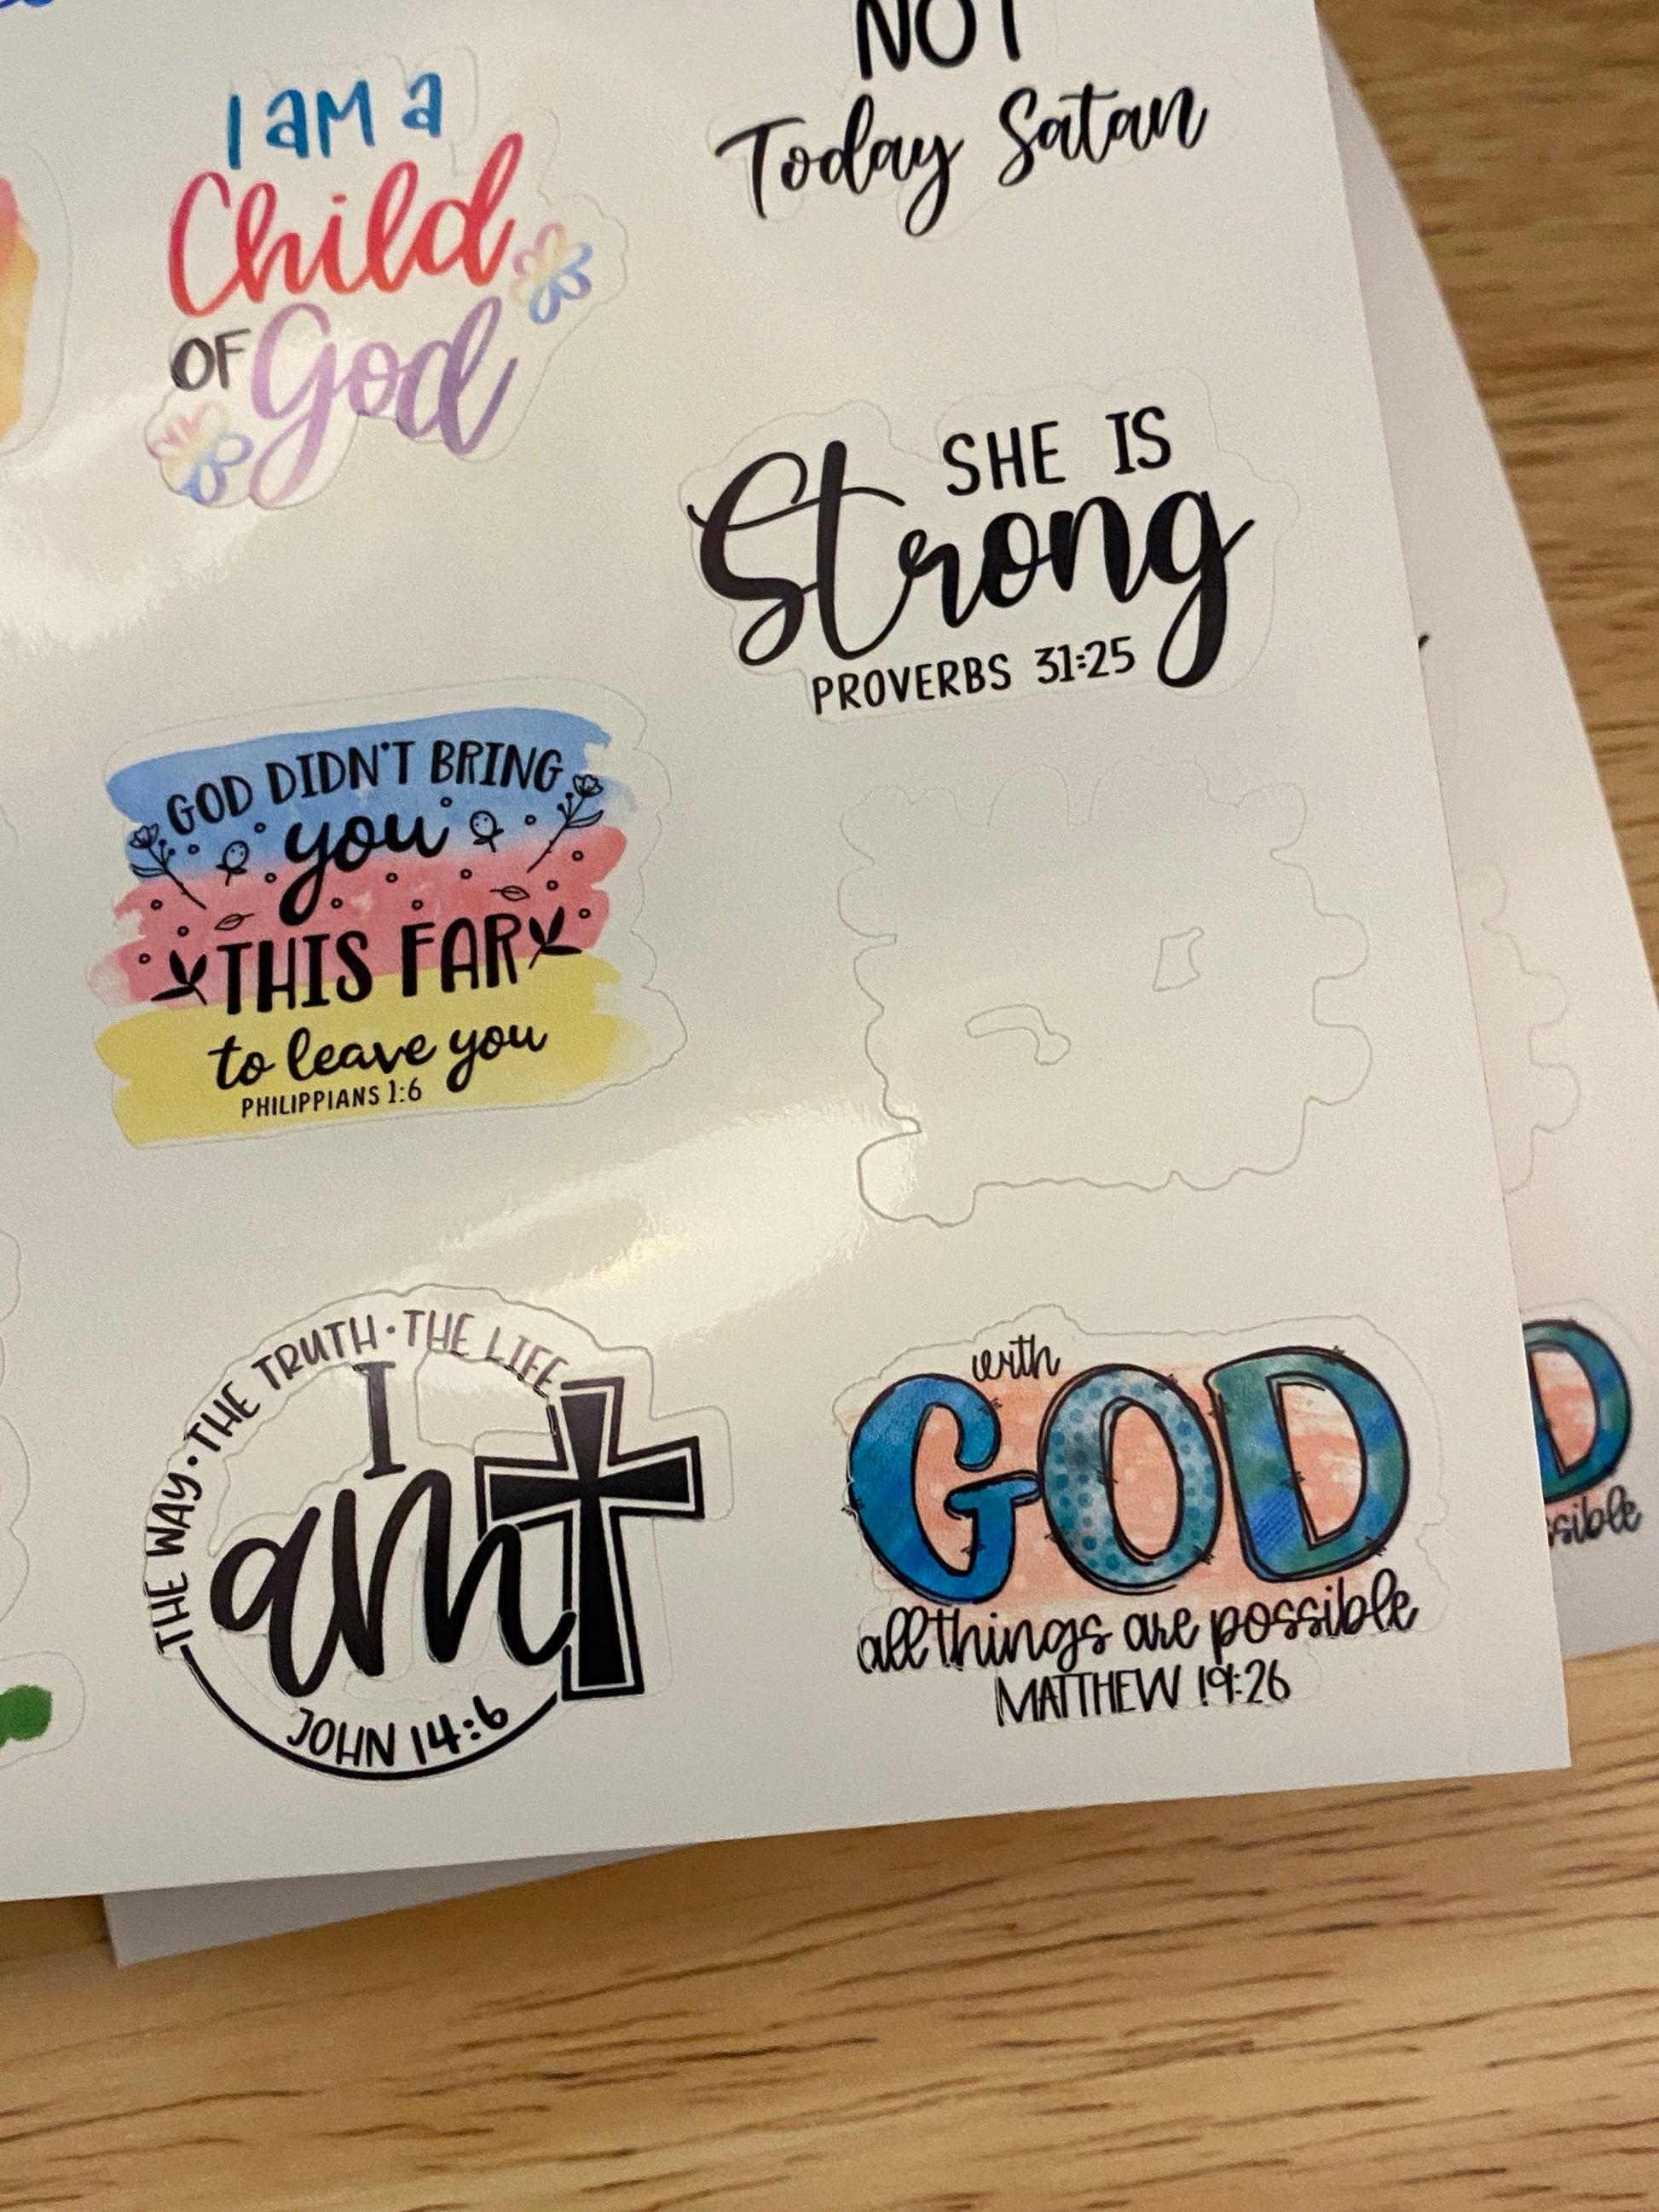 I am a
Child
OF God
NOT
Today Satan
SHE IS
Strong
PROVERBS 31:25
GOD DIDN'T BRING
you
THIS FAR
to leave you
PHILIPPIANS 1:6
THE WAY · THE TRUTH · THE LIFE
I
am
JOHN 14:6
with
GOD
all things are possible
MATTHEW 19:26
D
ssible